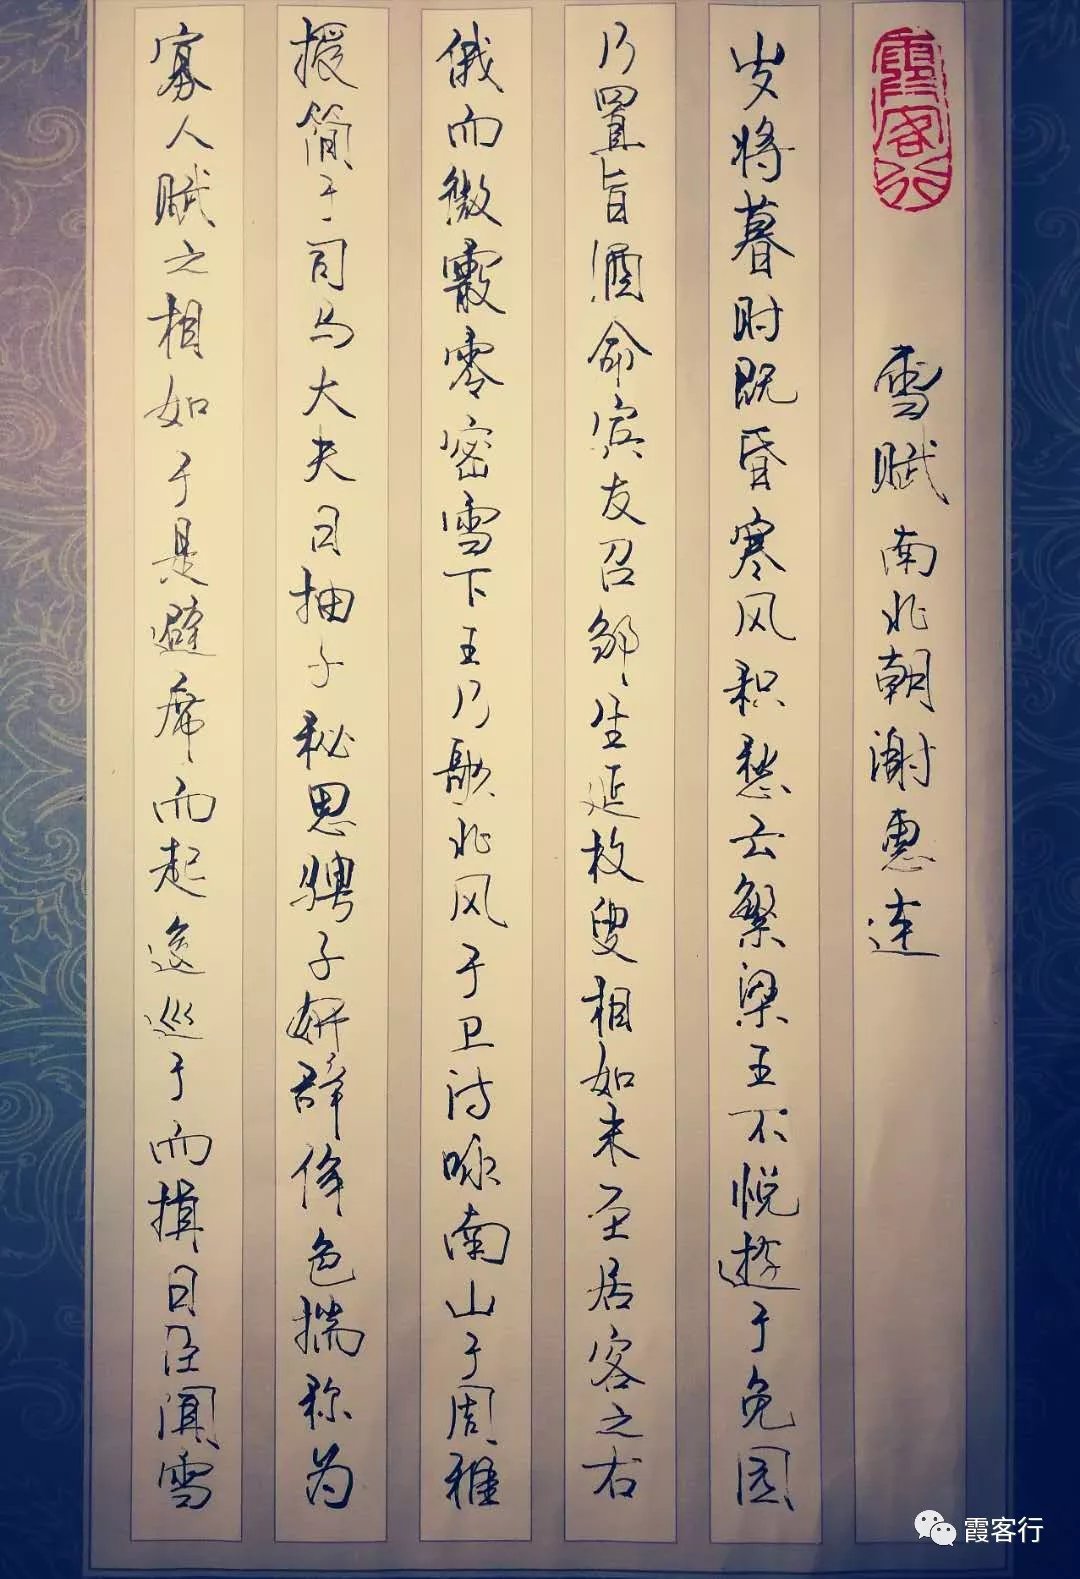 霞客行
雪赋 南北朝 谢惠连
岁将暮时既昏寒风积愁云繁梁王不悦游于兔园
乃置旨酒命宾友召邹生延枚叟相如末至居客之右
俄而微霰零密雪下王乃歌北风于卫诗咏南山于周雅
授简于司马大夫曰抽子秘思骋子妍辞侔色揣称为
寡人赋之相如于是避席而起逡巡于而揖曰臣闻雪
霞客行